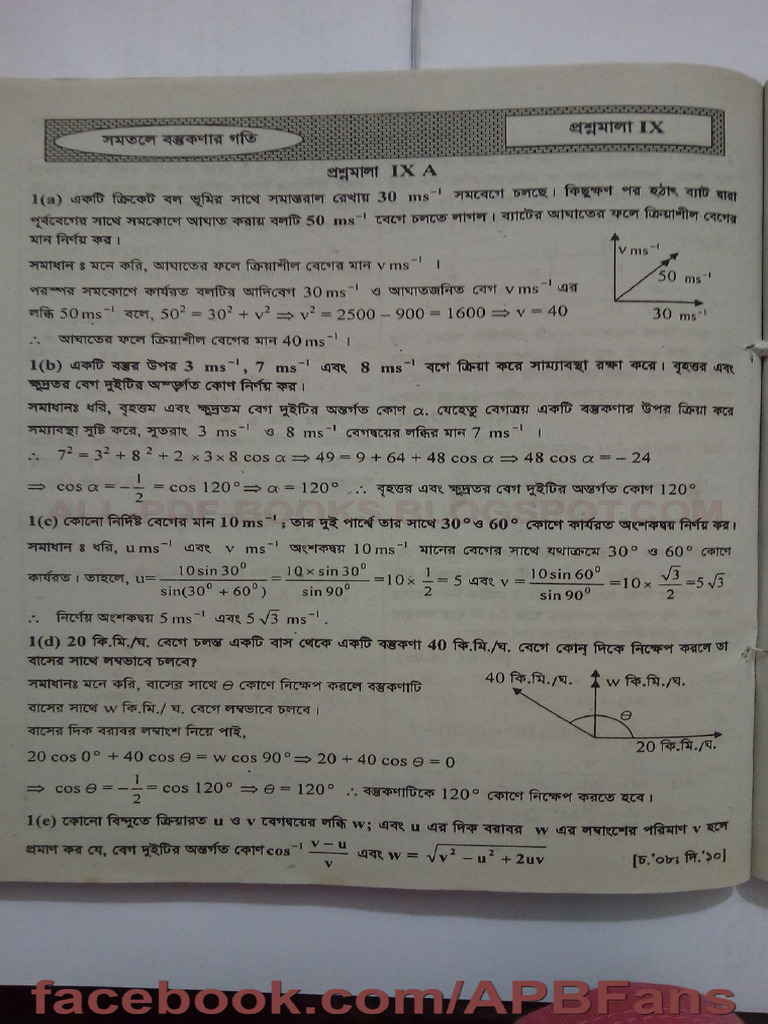 সমতলে বস্তুকণার গতি
প্রশ্নমালা IX
প্রশ্নমালা IX A
1(a) একটি ক্রিকেট বল ভূমির সাথে সমান্তরাল রেখায় 30 ms⁻¹ সমবেগে চলছে। কিছুক্ষণ পর হঠাৎ ব্যাট দ্বারা
পূর্ববেগের সাথে সমকোণে আঘাত করায় বলটি 50 ms⁻¹ বেগে চলতে লাগল। ব্যাটের আঘাতের ফলে ক্রিয়াশীল বেগের
মান নির্ণয় কর।
সমাধান ঃ মনে করি, আঘাতের ফলে ক্রিয়াশীল বেগের মান v ms⁻¹ ।
পরস্পর সমকোণে কার্যরত বলটির আদিবেগ 30 ms⁻¹ ও আঘাতজনিত বেগ v ms⁻¹ এর
লব্ধি 50 ms⁻¹ বলে, 50² = 30² + v² ⇒ v² = 2500 – 900 = 1600 ⇒ v = 40
v ms⁻¹
50 ms⁻¹
30 ms⁻¹
∴ আঘাতের ফলে ক্রিয়াশীল বেগের মান 40 ms⁻¹ ।
1(b) একটি বস্তুর উপর 3 ms⁻¹, 7 ms⁻¹ এবং 8 ms⁻¹ বগে ক্রিয়া করে সাম্যাবস্থা রক্ষা করে। বৃহত্তর এবং
ক্ষুদ্রতর বেগ দুইটির অন্তর্গত কোণ নির্ণয় কর।
সমাধানঃ ধরি, বৃহত্তম এবং ক্ষুদ্রতম বেগ দুইটির অন্তর্গত কোণ α. যেহেতু বেগত্রয় একটি বস্তুকণার উপর ক্রিয়া করে
সম্যাবস্থা সৃষ্টি করে, সুতরাং 3 ms⁻¹ ও 8 ms⁻¹ বেগদ্বয়ের লব্ধির মান 7 ms⁻¹ ।
∴ 7² = 3² + 8² + 2 × 3 × 8 cos α ⇒ 49 = 9 + 64 + 48 cos α ⇒ 48 cos α = – 24
⇒ cos α = –1/2 = cos 120° ⇒ α = 120° ∴ বৃহত্তর এবং ক্ষুদ্রতর বেগ দুইটির অন্তর্গত কোণ 120°
1(c) কোনো নির্দিষ্ট বেগের মান 10 ms⁻¹ ; তার দুই পার্শ্বে তার সাথে 30° ও 60° কোণে কার্যরত অংশকদ্বয় নির্ণয় কর।
সমাধান ঃ ধরি, u ms⁻¹ এবং v ms⁻¹ অংশকদ্বয় 10 ms⁻¹ মানের বেগের সাথে যথাক্রমে 30° ও 60° কোণে
কার্যরত। তাহলে, u= 10 sin 30⁰/sin(30⁰ + 60⁰) = 10 × sin 30⁰/sin 90⁰ =10 × 1/2 = 5 এবং v = 10 sin 60⁰/sin 90⁰ =10 × √3/2 =5√3
∴ নির্ণেয় অংশকদ্বয় 5 ms⁻¹ এবং 5√3 ms⁻¹ .
1(d) 20 কি.মি./ঘ. বেগে চলন্ত একটি বাস থেকে একটি বস্তুকণা 40 কি.মি./ঘ. বেগে কোন্ দিকে নিক্ষেপ করলে তা
বাসের সাথে লম্বভাবে চলবে?
সমাধানঃ মনে করি, বাসের সাথে θ কোণে নিক্ষেপ করলে বস্তুকণাটি
বাসের সাথে w কি.মি./ ঘ. বেগে লম্বভাবে চলবে।
বাসের দিক বরাবর লম্বাংশ নিয়ে পাই,
40 কি.মি./ঘ.
w কি.মি./ঘ.
θ
20 কি.মি./ঘ.
20 cos 0° + 40 cos θ = w cos 90° ⇒ 20 + 40 cos θ = 0
⇒ cos θ = –1/2 = cos 120° ⇒ θ = 120° ∴ বস্তুকণাটিকে 120° কোণে নিক্ষেপ করতে হবে।
1(e) কোনো বিন্দুতে ক্রিয়ারত u ও v বেগদ্বয়ের লব্ধি w; এবং u এর দিক বরাবর w এর লম্বাংশের পরিমাণ v হলে
প্রমাণ কর যে, বেগ দুইটির অন্তর্গত কোণ cos⁻¹ (v – u)/v এবং w = √(v² – u² + 2uv) [চ.'০৮; সি.'১০]
facebook.com/APBFans